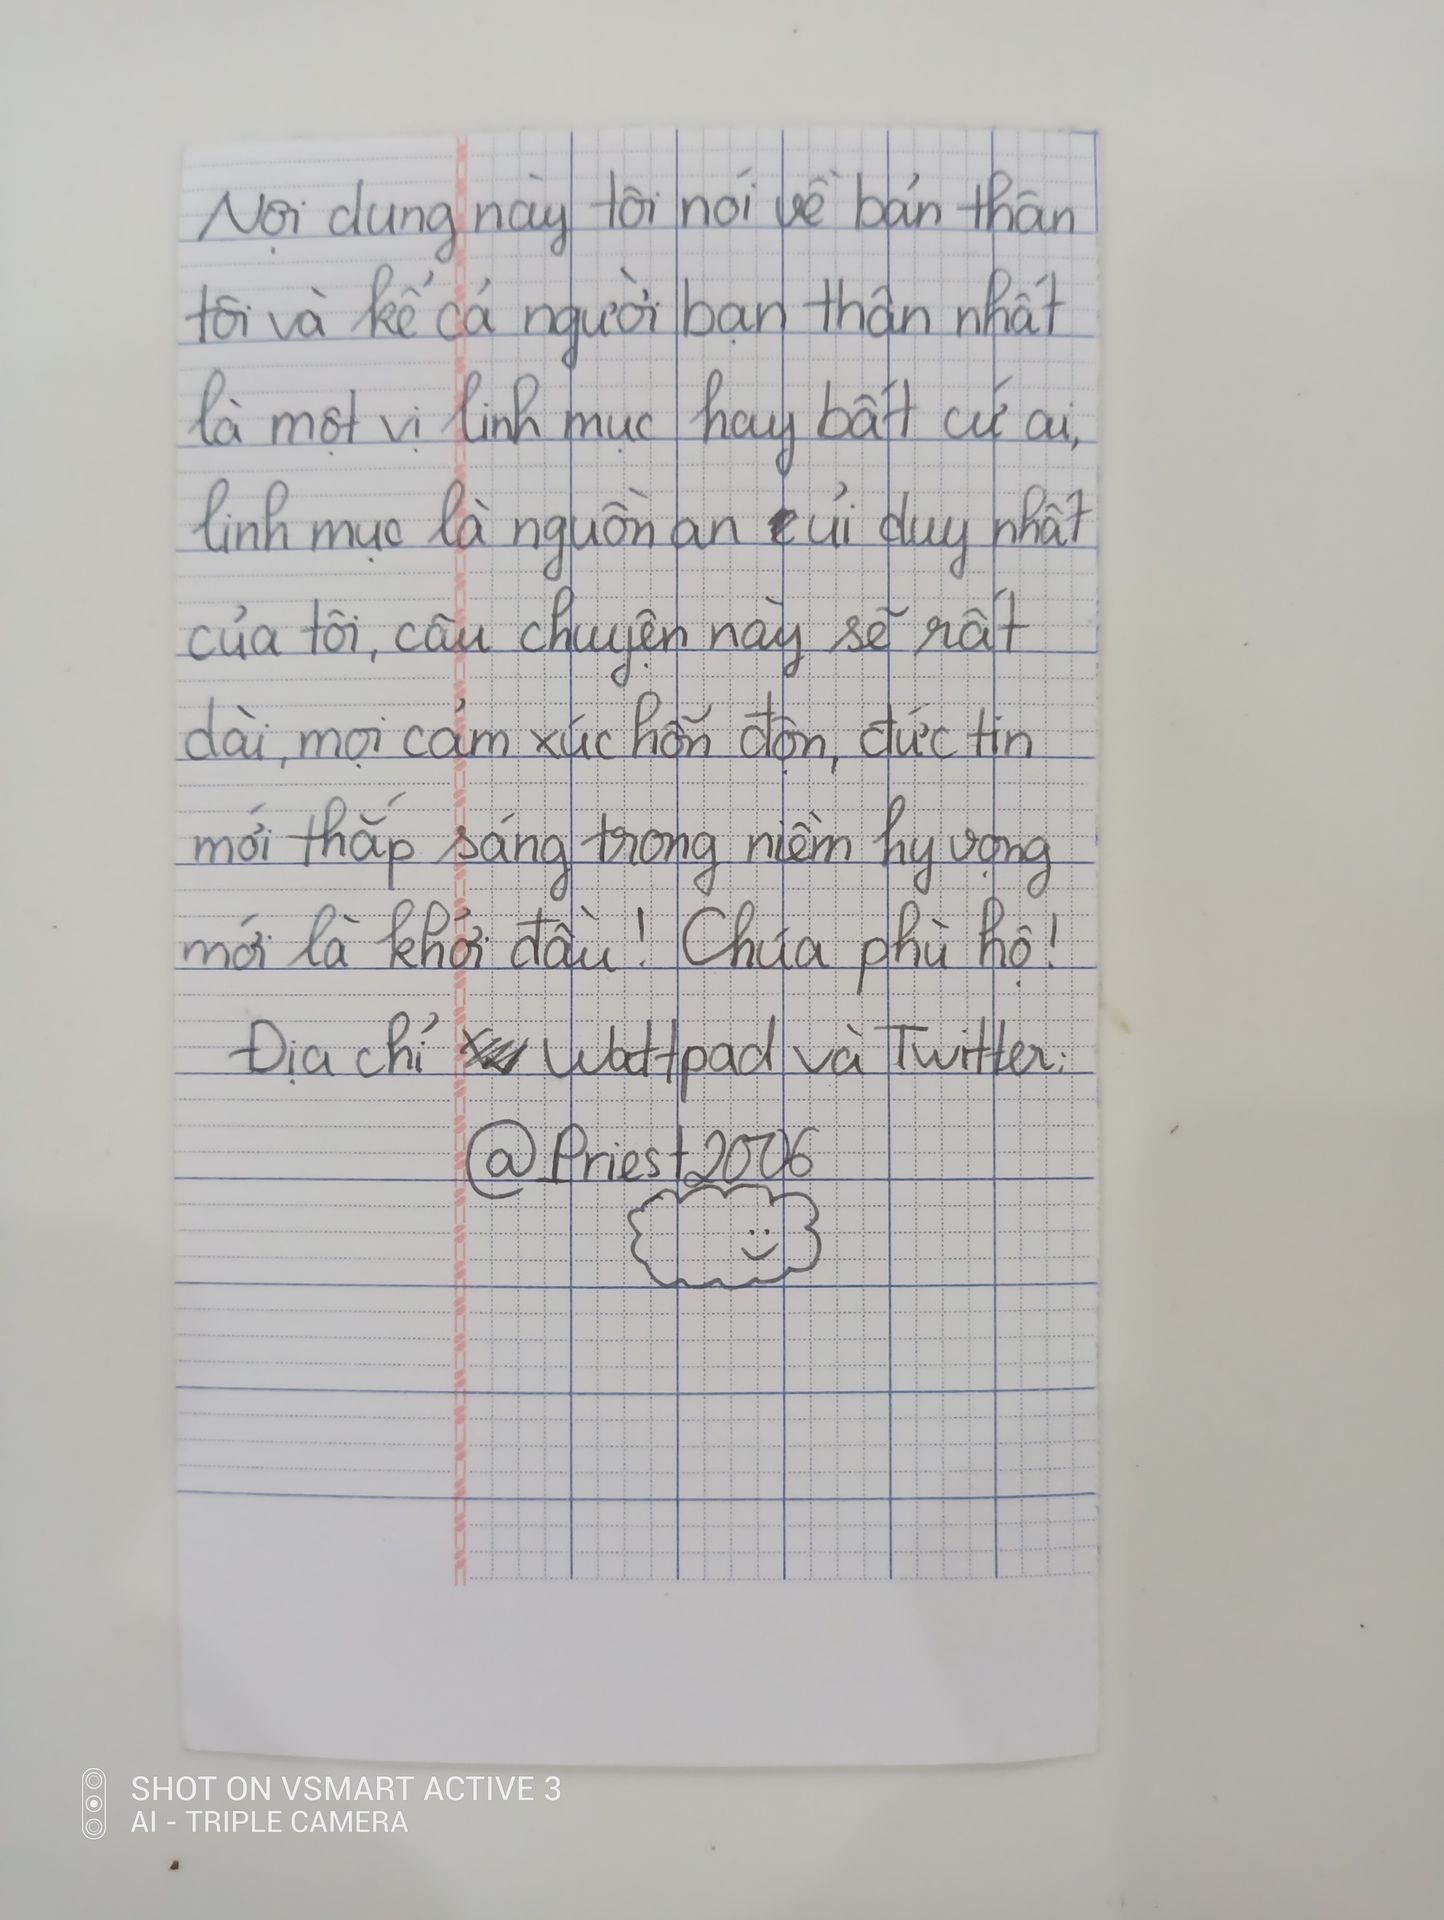 Nội dung này tôi nói về bản thân
tôi và kể cả người bạn thân nhất
là một vị linh mục hay bất cứ ai,
linh mục là nguồn an ủi duy nhất
của tôi, câu chuyện này sẽ rất
dài, mọi cảm xúc hỗn độn, đức tin
mới thắp sáng trong niềm hy vọng
mới là khởi đầu! Chúa phù hộ!
Địa chỉ Wattpad và Twitter:
@Priest2006
SHOT ON VSMART ACTIVE 3
AI - TRIPLE CAMERA